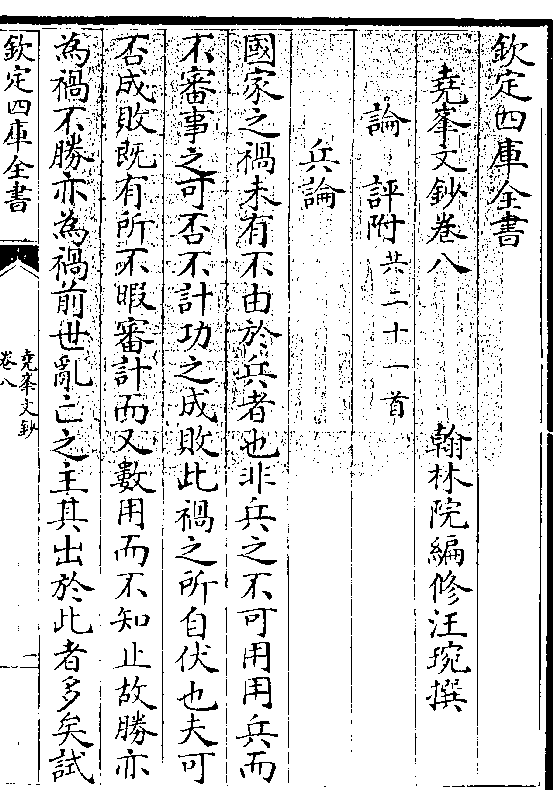 欽定四庫全書
堯峯文鈔卷八
翰林院編修汪琬撰
論 評附共二十一首
兵論
國家之禍未有不由於兵者也非兵之不可用用兵而
不審事之可否不計功之成敗此禍之所自伏也夫可
否成敗既有所不暇審計而又數用而不知止故勝亦
為禍不勝亦為禍前世亂亡之主其出於此者多矣試
欽定四庫全書
堯峯文鈔
卷八
一